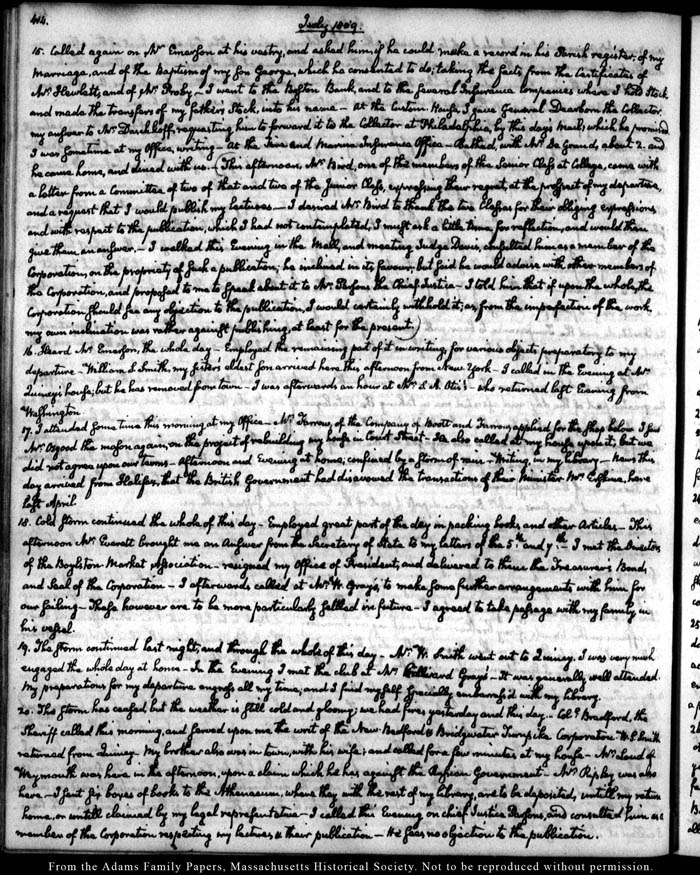 414.
July 1809.
15. Called again on Mr Emerson at his vestry, and asked him, if he could make a record in his Parish register, of my
marriage, and of the Baptism of my Son George, which he consented to do, taking the facts from the Certificates of
Mr Hewlett, and of Mr Proby — I went to the Boston Bank, and to the several Insurance Companies where I hold Stock
and made the transfers of my father's Stock, into his name — At the Custom House, I gave General Dearborn the Collector,
my answer to Mr Daschkoff, requesting him to forward it to the Collector at Philadelphia, by this day's Mail; which he promised
I was sometime at my Office, writing — At the Fire and Marine Insurance Office — Bathed, with Mr De Grand, about 2. and
he came home, and dined with us. (This afternoon, Mr Bird, one of the members of the Senior Class at College, came with
a letter from a Committee of two of that and two of the Junior Class, expressing their regret, at the prospect of my departure,
and a request that I would publish my lectures — I desired Mr Bird to thank the two Classes for their obliging expressions,
and with respect to the publication, which I had not contemplated, I must ask a little time, for reflection, and would then
give them an answer. — I walked this Evening in the Mall, and meeting Judge Davis, consulted him as a member of the
Corporation, on the propriety of such a publication; he inclined in its favour, but said he would advise with other members of
the Corporation, and proposed to me to speak about it to Mr Parsons the Chief Justice — I told him that if upon the whole, the
Corporation should see any objection to the publication, I would certainly withhold it; as, from the imperfection of the work
my own inclination was rather against publishing, at least for the present.)
16. Heard Mr Emerson, the whole day — Employed the remaining part of it in writing, for various objects preparatory to my
departure — William S. Smith, my sister's oldest son arrived here this afternoon from New York — I called in the Evening at Mr
Quincy's house; but he has removed from town — I was afterwards an hour at Mr S. A. Otis's — who returned last Evening from
Washington
17. I attended some time this morning at my Office — Mr Farrow, of the Company of Boott and Farrow, applied for the shop below. I saw
Mr Osgood the mason again, on the project of rebuilding my house in Court Street — He also called at my house upon it; but we
did not agree upon our terms — Afternoon and Evening at home; confined by a storm of rain — Writing, in my library — News this
day arrived from Halifax, that the British Government had disavowed the transactions of their Minister Mr Erskine, here
last April
18. Cold storm continued the whole of this day — Employed great part of the day in packing books, and other Articles — This
afternoon Mr Everett brought me an Answer from the Secretary of State to my letters of the 5th and 7th — I met the Directors
of the Boylston Market Association — resigned my Office of President, and delivered to them the Treasurer's Bond,
and Seal of the Corporation — I afterwards called at Mr W. Gray's, to make some further arrangements with him for
our sailing — These however are to be more particularly settled in future — I agreed to take passage with my family in
his vessel.
19. The storm continued last night, and through the whole of this day — Mr W. Smith went out to Quincy. I was very much
engaged the whole day at home — In the Evening I met the club at Mr Gray's — It was generally well attended.
My preparations for my departure engross all my time, and I find myself specially embarrass'd with my library.
20. The storm has ceased but the weather is still cold and gloomy; we had fires yesterday and this day. — Coll Bradford, the
Sheriff called this morning, and served upon me the writ of the New Bedford & Bridgwater Turnpike Corporation — W. S. Smith
returned from Quincy. My brother also was in town, with his wife; and called for a few minutes at my house — Mr Loud of
Weymouth was here in the afternoon, upon a claim which he has against the Russian Government — Mr Ripley was also
here — I sent six boxes of books to the Athenaeum, where they with the rest of my library, are to be deposited, untill my return
home, or untill claimed by my legal representative — I called this Evening on chief Justice Parsons, and consulted him as a
member of the Corporation respecting my lectures, & their publication — He sees no objection to the publication.
From the Adams Family Papers, Massachusetts Historical Society. Not to be reproduced without permission.